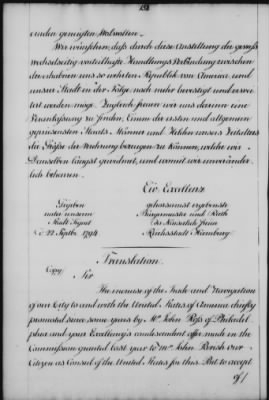 enden geneigten Wohlwollen.
Wir wünschen, daß durch diese Anstellung die gewiß
wechselseitig vortheilhafte Handlungs Verbindung zwischen
der erhabenen uns so wehrten Republik von America und
unser Stadt in der Folge noch mehr bevestiget und erwei-
tert werden möge. Zugleich freuen wir uns darinn eine
Veranlassung zu finden, Einem der ersten und allgemein
gepriesensten Staats Männer und Helden unsers Zeitalters
die Größe der Verehrung bezeugen zu können, welche wir
Demselben längst gewidmet, und womit wir unveränder-
lich beharren.
Ew. Excellenz
Gegeben
unter unserm
Stadt Signet
22 Septbr 1794
gehorsamst ergebenste
Bürgermeister und Rath
der Kaiserlich freien
Reichsstadt Hamburg
Translation.
Copy
Sir
The increase of the Trade and Navigation
of our City to and with the United States of America chiefly
promoted since some years by Mr John Ross of Philadel-
phia and your Excellency's condescendent offer made in the
Commission granted last year to Mr John Parish our
Citizen as Consul of the United States for this Port to accept
of